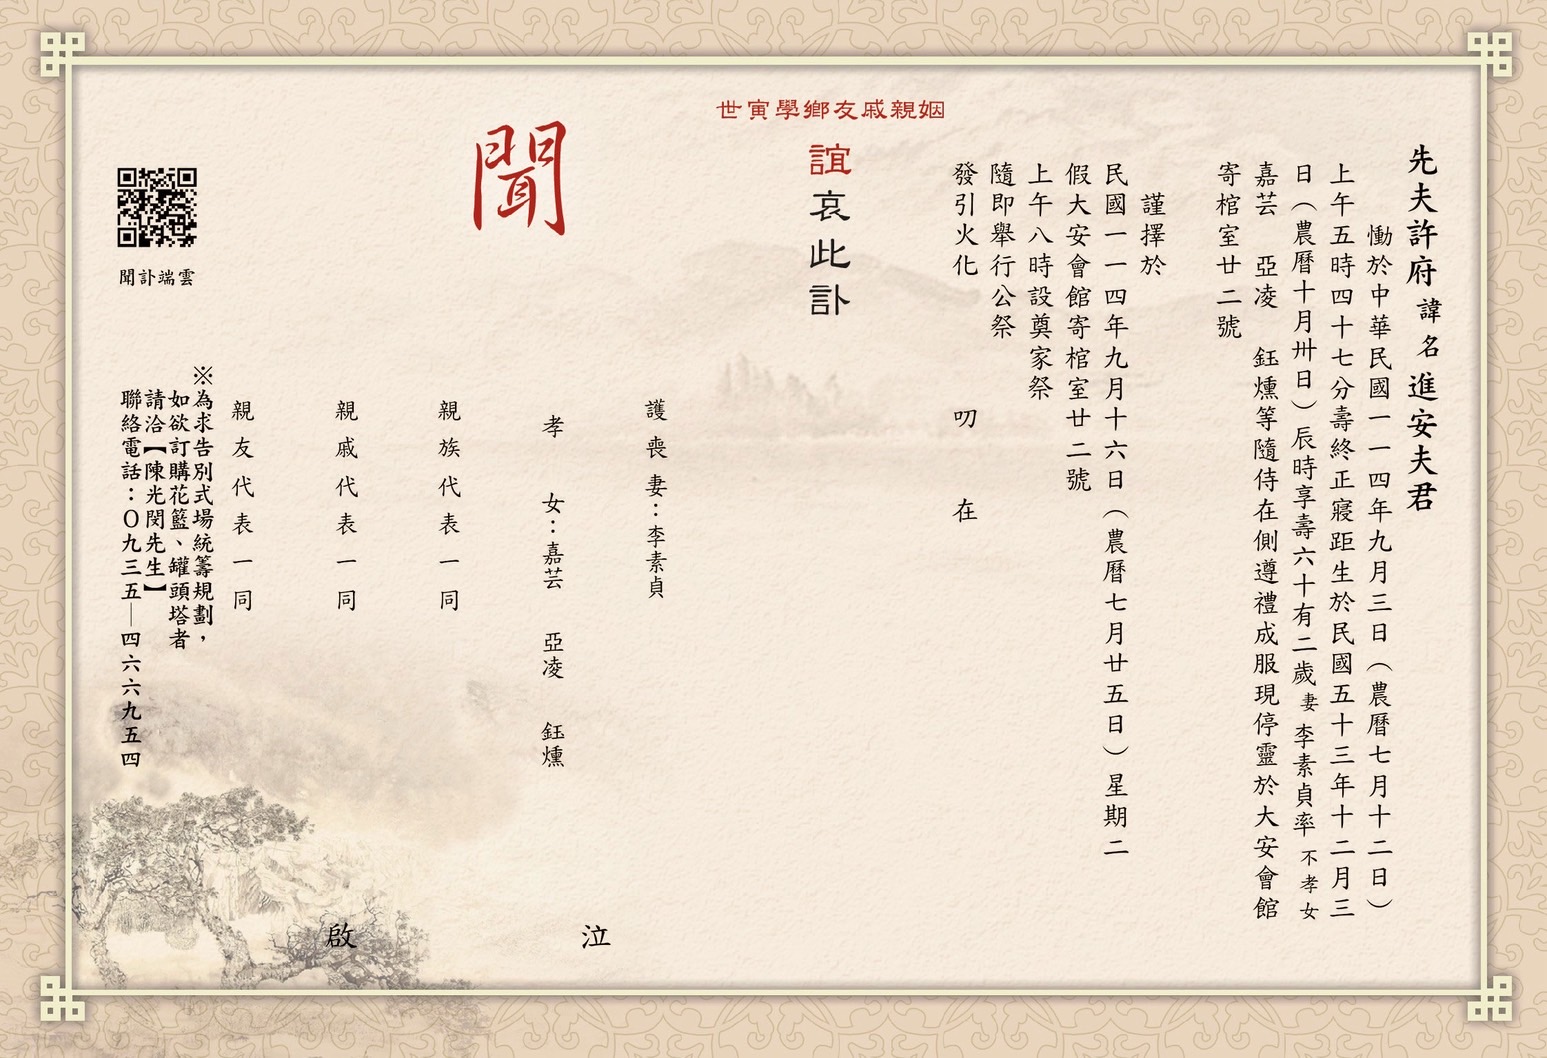 先夫許府諱名進安夫君
慟於中華民國一一四年九月三日（農曆七月十二日）
上午五時四十七分壽終正寢距生於民國五十三年十二月三
日（農曆十月卅日）辰時享壽六十有二歲妻李素貞率不孝女
嘉芸　亞凌　鈺燻等隨侍在側遵禮成服現停靈於大安會館
寄棺室廿二號
謹擇於
民國一一四年九月十六日（農曆七月廿五日）星期二
假大安會館寄棺室廿二號
上午八時設奠家祭
隨即舉行公祭
發引火化
叨　在
姻親戚友鄉學寅世
誼哀此訃
聞
護喪妻：李素貞
孝　女：嘉芸　亞凌　鈺燻
泣
親族代表一同
親戚代表一同
親友代表一同
啟
※為求告別式場統籌規劃，
如欲訂購花籃、罐頭塔者
請洽【陳光閔先生】
聯絡電話：０九三五—四六六九五四
雲端訃聞